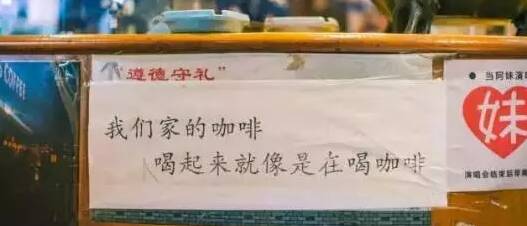 COFFEE
"遵德守礼"
我们家的咖啡
喝起来就像是在喝咖啡
当阿妹演唱
妹
演唱会结束后